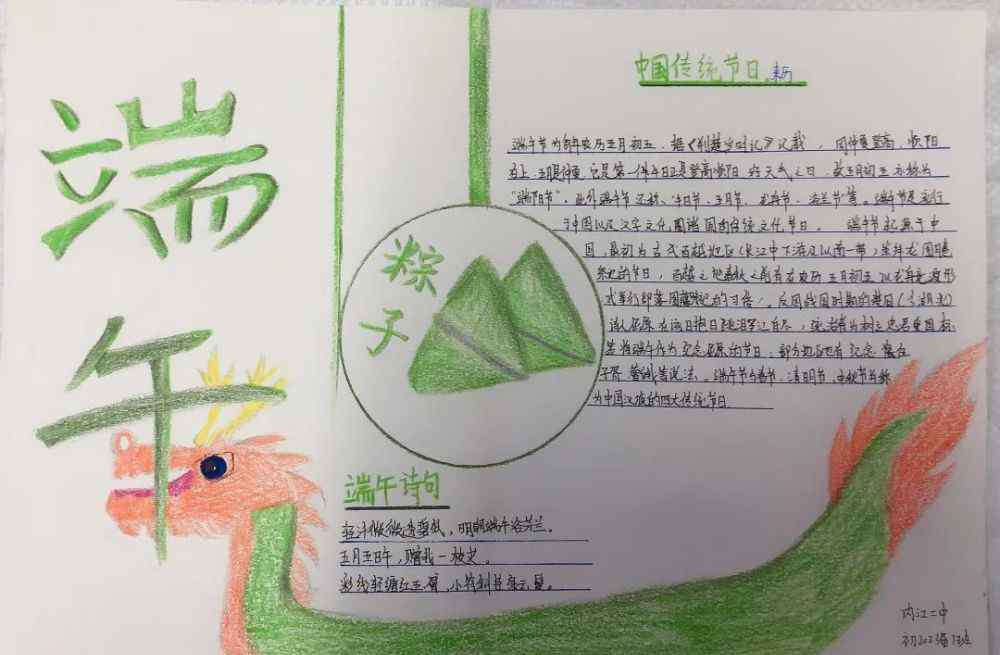 端午
粽子
中国传统节日
端午节为每年农历五月初五。据《荆楚岁时记》记载,因仲夏登高,顺阳
在上,五月是仲夏,它是第一个午日正是登高顺阳的天气之日,故五月初五亦称为
"端阳节"。此外端午节还称"午日节、五月节、龙舟节、浴兰节"等。端午节是流行
于中国以及汉字文化圈诸国的传统文化节日。端午节起源于中
国,最初为古代百越地区(长江中下游及以南一带)崇拜龙图腾
祭祀的节日,百越之地春秋之前有在农历五月初五以龙舟竞渡形
式举行部落图腾祭祀的习俗。后因战国时期的楚国(今湖北)
诗人屈原在该日抱石跳汨罗江自尽,统治者为树立忠君爱国标
签将端午作为纪念屈原的节日,部分地区也有纪念
子胥、曹娥等说法。端午节与春节、清明节、中秋节并称
为中国汉族的四大传统节日
端午诗句
轻汗微微透碧纨,明朝端午浴芳兰。
五月五日午,赠我一枝艾。
彩线轻缠红玉臂,小符斜挂绿云鬟。
内江二中